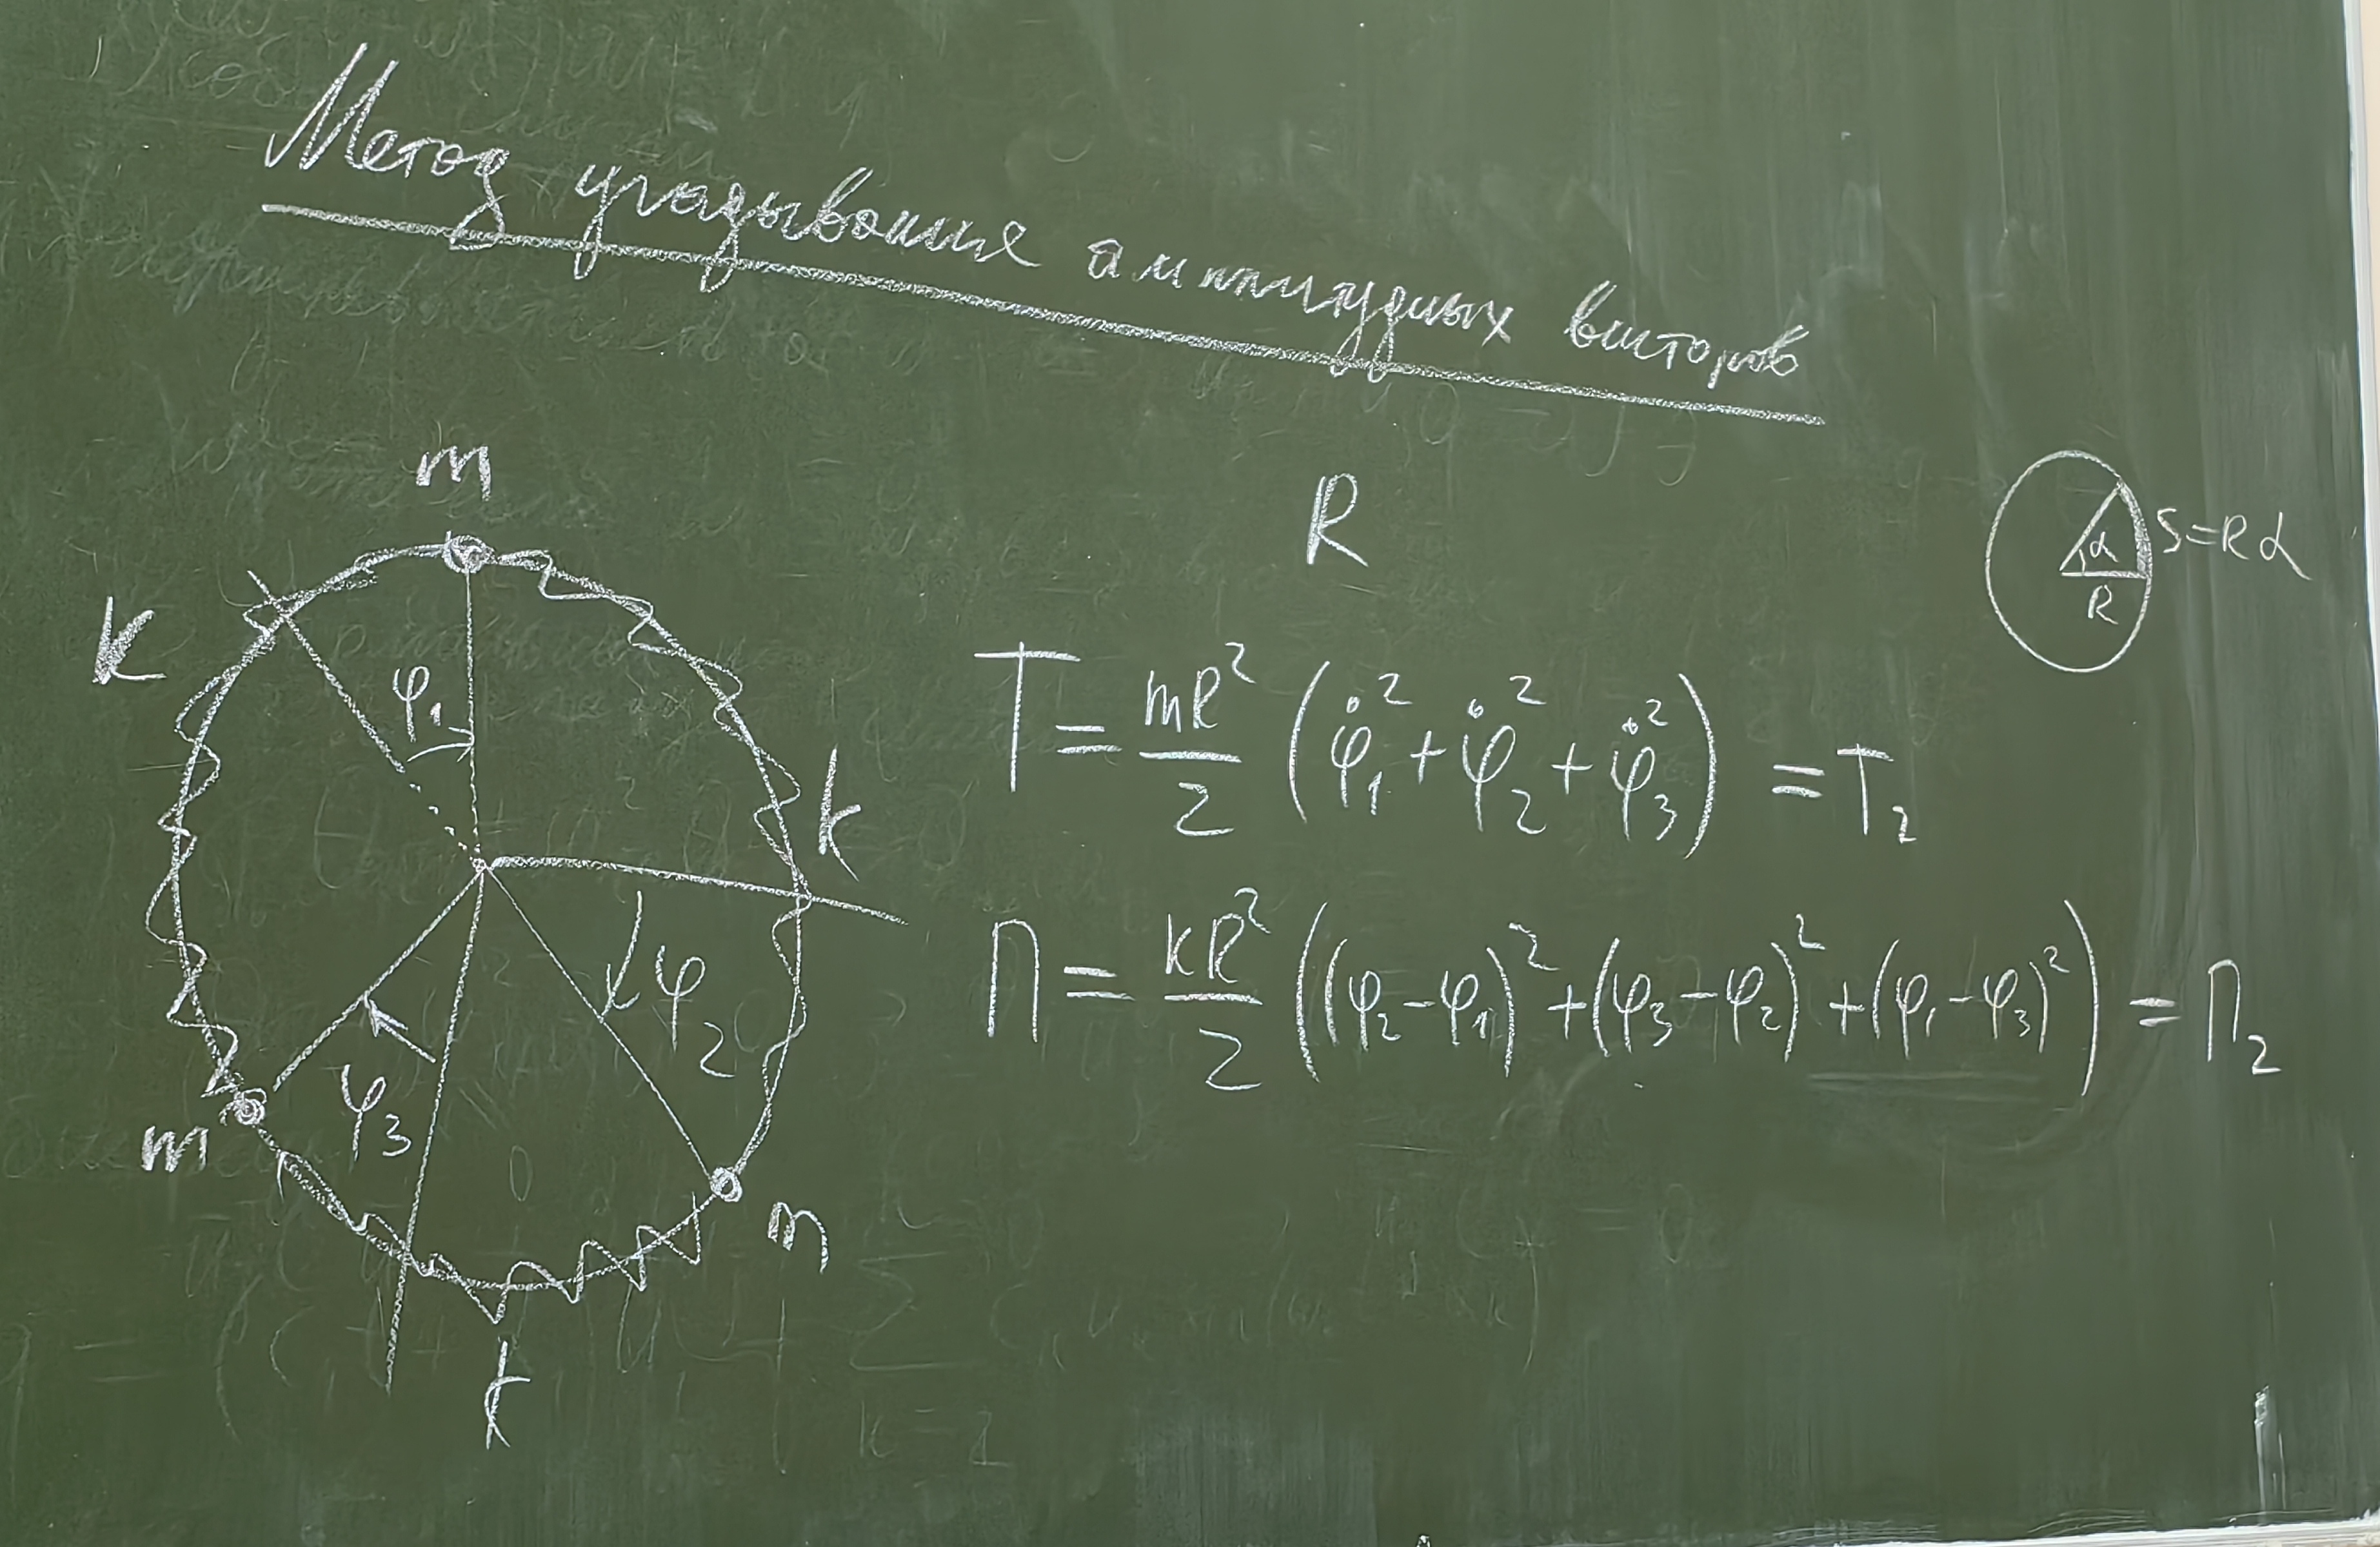 Метод угадывания амплитудных векторов
m
R
k
φ₁
α
R
S=Rα
T = mR²/2 (φ̇₁² + φ̇₂² + φ̇₃²) = T₂
k
φ₂
Π = kR²/2 ((φ₂-φ₁)² + (φ₃-φ₂)² + (φ₁-φ₃)²) = Π₂
φ₃
m
m
k